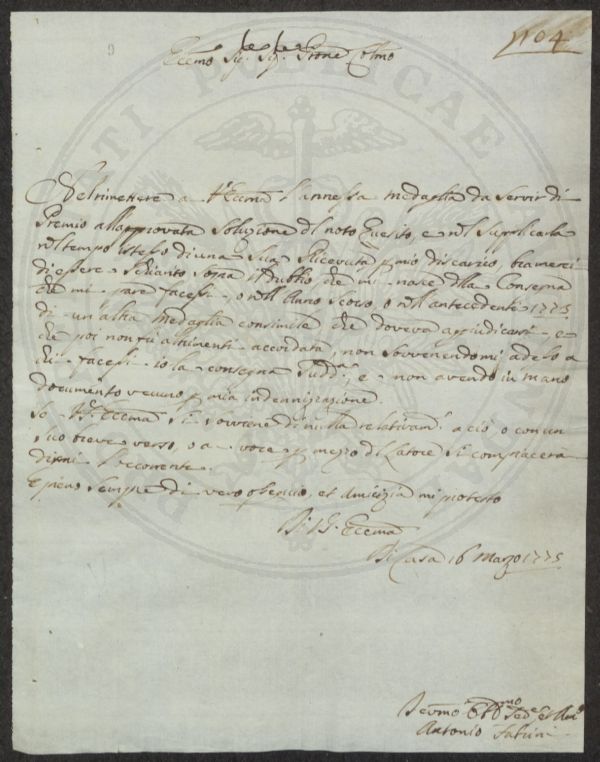 1104
Eccmo Sig.re Sig.re Prone Colmo
Nel rimettere a V.Eccma l'annessa medaglia da servir di
Premio all'approvata soluzione del noto Quesito, e nel supplicarla
nel tempo istesso di una Sua Ricevuta p mio discarico, bramerei
di essere schiarito sopra il dubbio che mi nasce della Consegna
che mi pare facessi o nell'anno scorso, o nell'antecedente 1773
di un'altra Medaglia consimile che doveva aggiudicarsi e
che poi non fu altrimenti accordata, non sovvenendomi adesso a
chi facessi io la consegna sudd.a, e non avendo in mano
documento veruno p mia indennizazione.
Se V.Eccma si sovviene di nulla relativam.e a ciò, o con un
suo breve verso, o a voce p mezo del Latore si compiacerà
dirmi l'occorrente.
E pieno sempre di vero ossequio, et amicizia mi protesto
Di V. Eccma
Di Casa 16 Marzo 1775
Devmo Obbmo Sed.e, et Am.o
Antonio Fabrini
ATI POETICAE